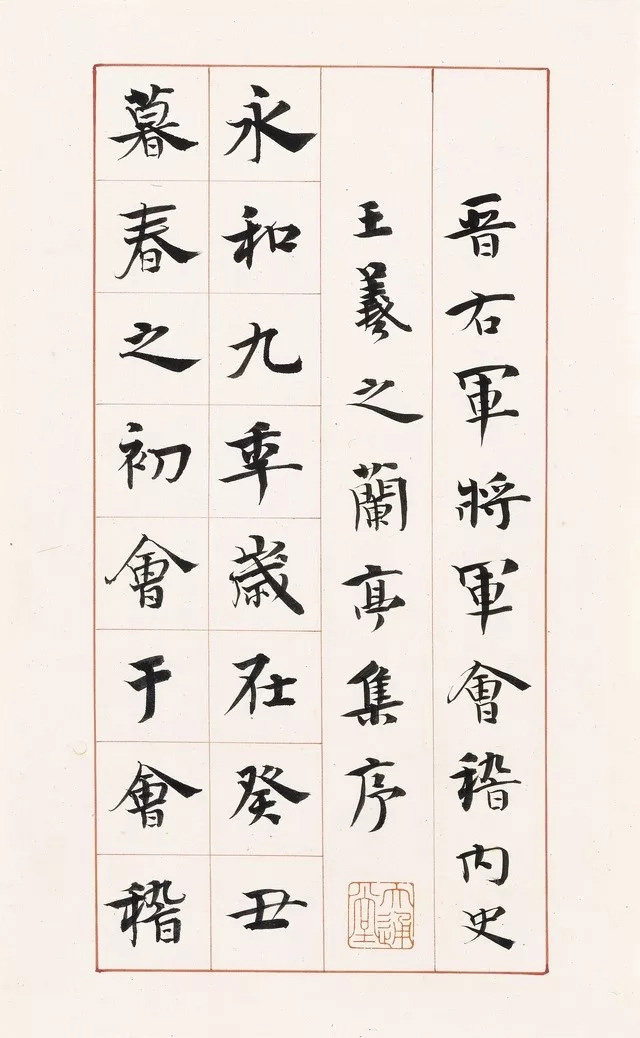 晉右軍將軍會稽内史
王羲之蘭亭集序
大通堂
永和九年歲在癸丑
暮春之初會于會稽